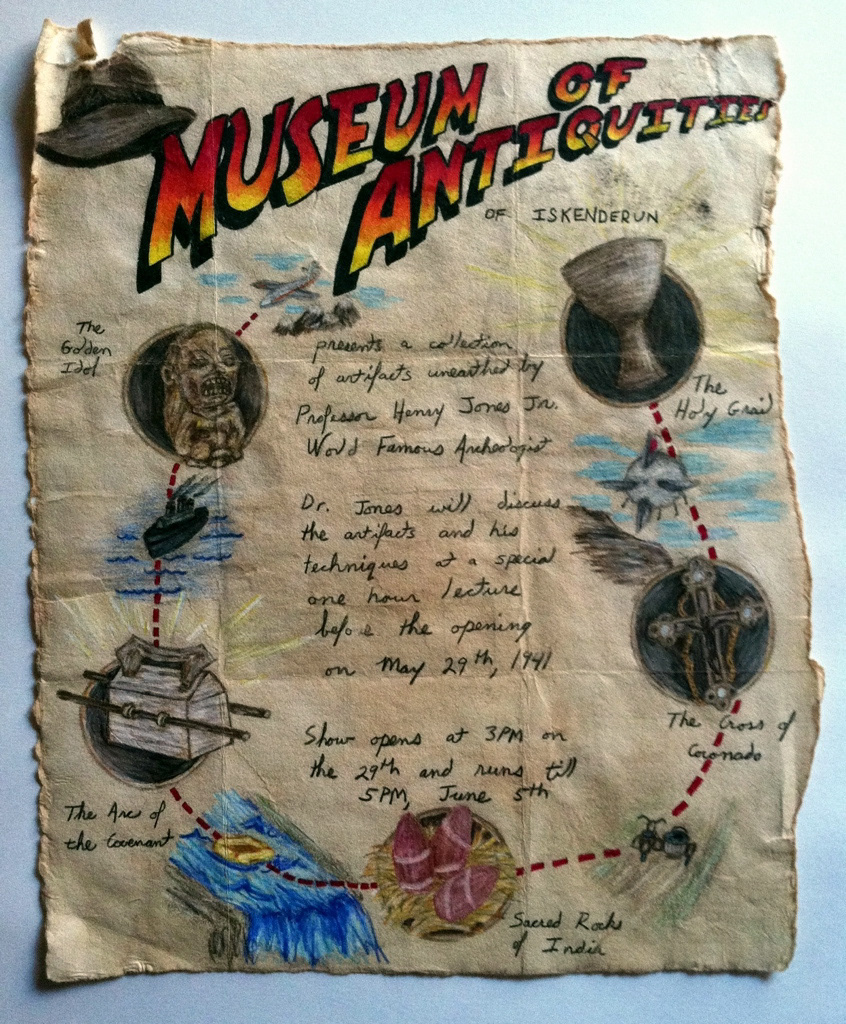 MUSEUM OF
ANTIQUITIES
OF ISKENDERUN
The
Golden
Idol
presents a collection
of artifacts unearthed by
Professor Henry Jones Jr.
World Famous Archeologist
The
Holy Grail
Dr. Jones will discuss
the artifacts and his
techniques at a special
one hour lecture
before the opening
on May 29th, 1941
The Cross of
Coronado
Show opens at 3PM on
the 29th and runs till
5PM, June 5th
The Arc of
the Covenant
Sacred Rocks
of India